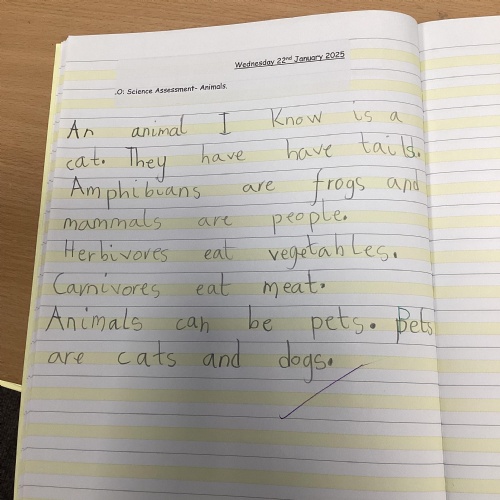 Wednesday 22nd January 2025
.O: Science Assessment- Animals.
An animal I know is a
cat. They have have tails.
Amphibians are frogs and
mammals are people.
Herbivores eat vegetables.
Carnivores eat meat.
Animals can be pets. Pets
are cats and dogs.